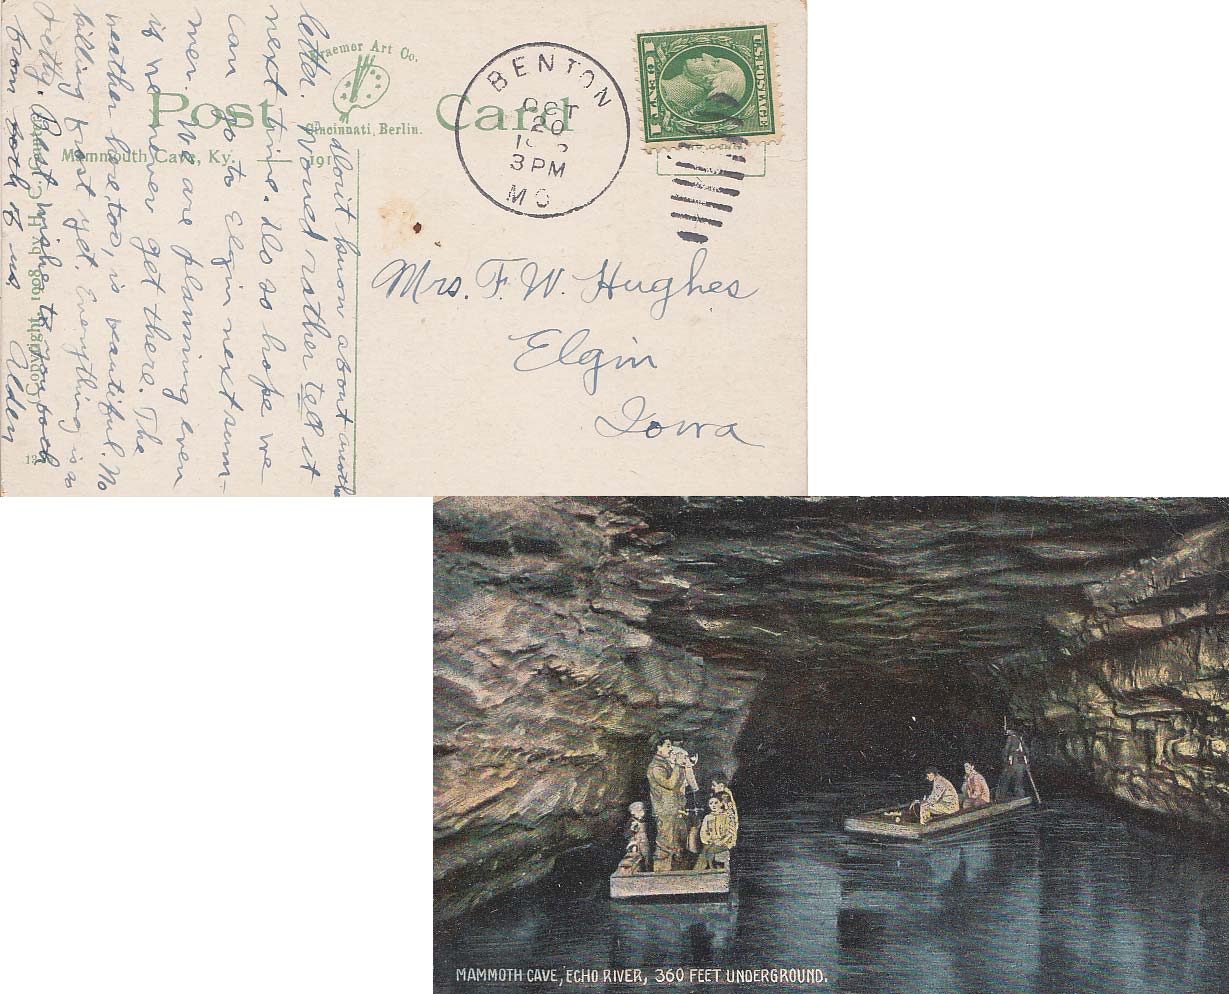 Kraemer Art Co.
Cincinnati, Berlin.
Post Card
Mammouth Cave, Ky. — 191
(Copyright 1908 by H. C.
13
BENTON
OCT
20
3 PM
MO.
U.S. POSTAGE
1 CENT 1
Mrs. F. W. Hughes
Elgin
Iowa
don't know about another
letter. Would rather tell it
next time. Do so hope we
can go to Elgin next sum-
mer. We are planning even
if we never get there. The
weather here, too, is beautiful. No
killing frost yet. Everything is so
pretty. Best wishes to you both
from both of us Alden
MAMMOTH CAVE, ECHO RIVER, 360 FEET UNDERGROUND.